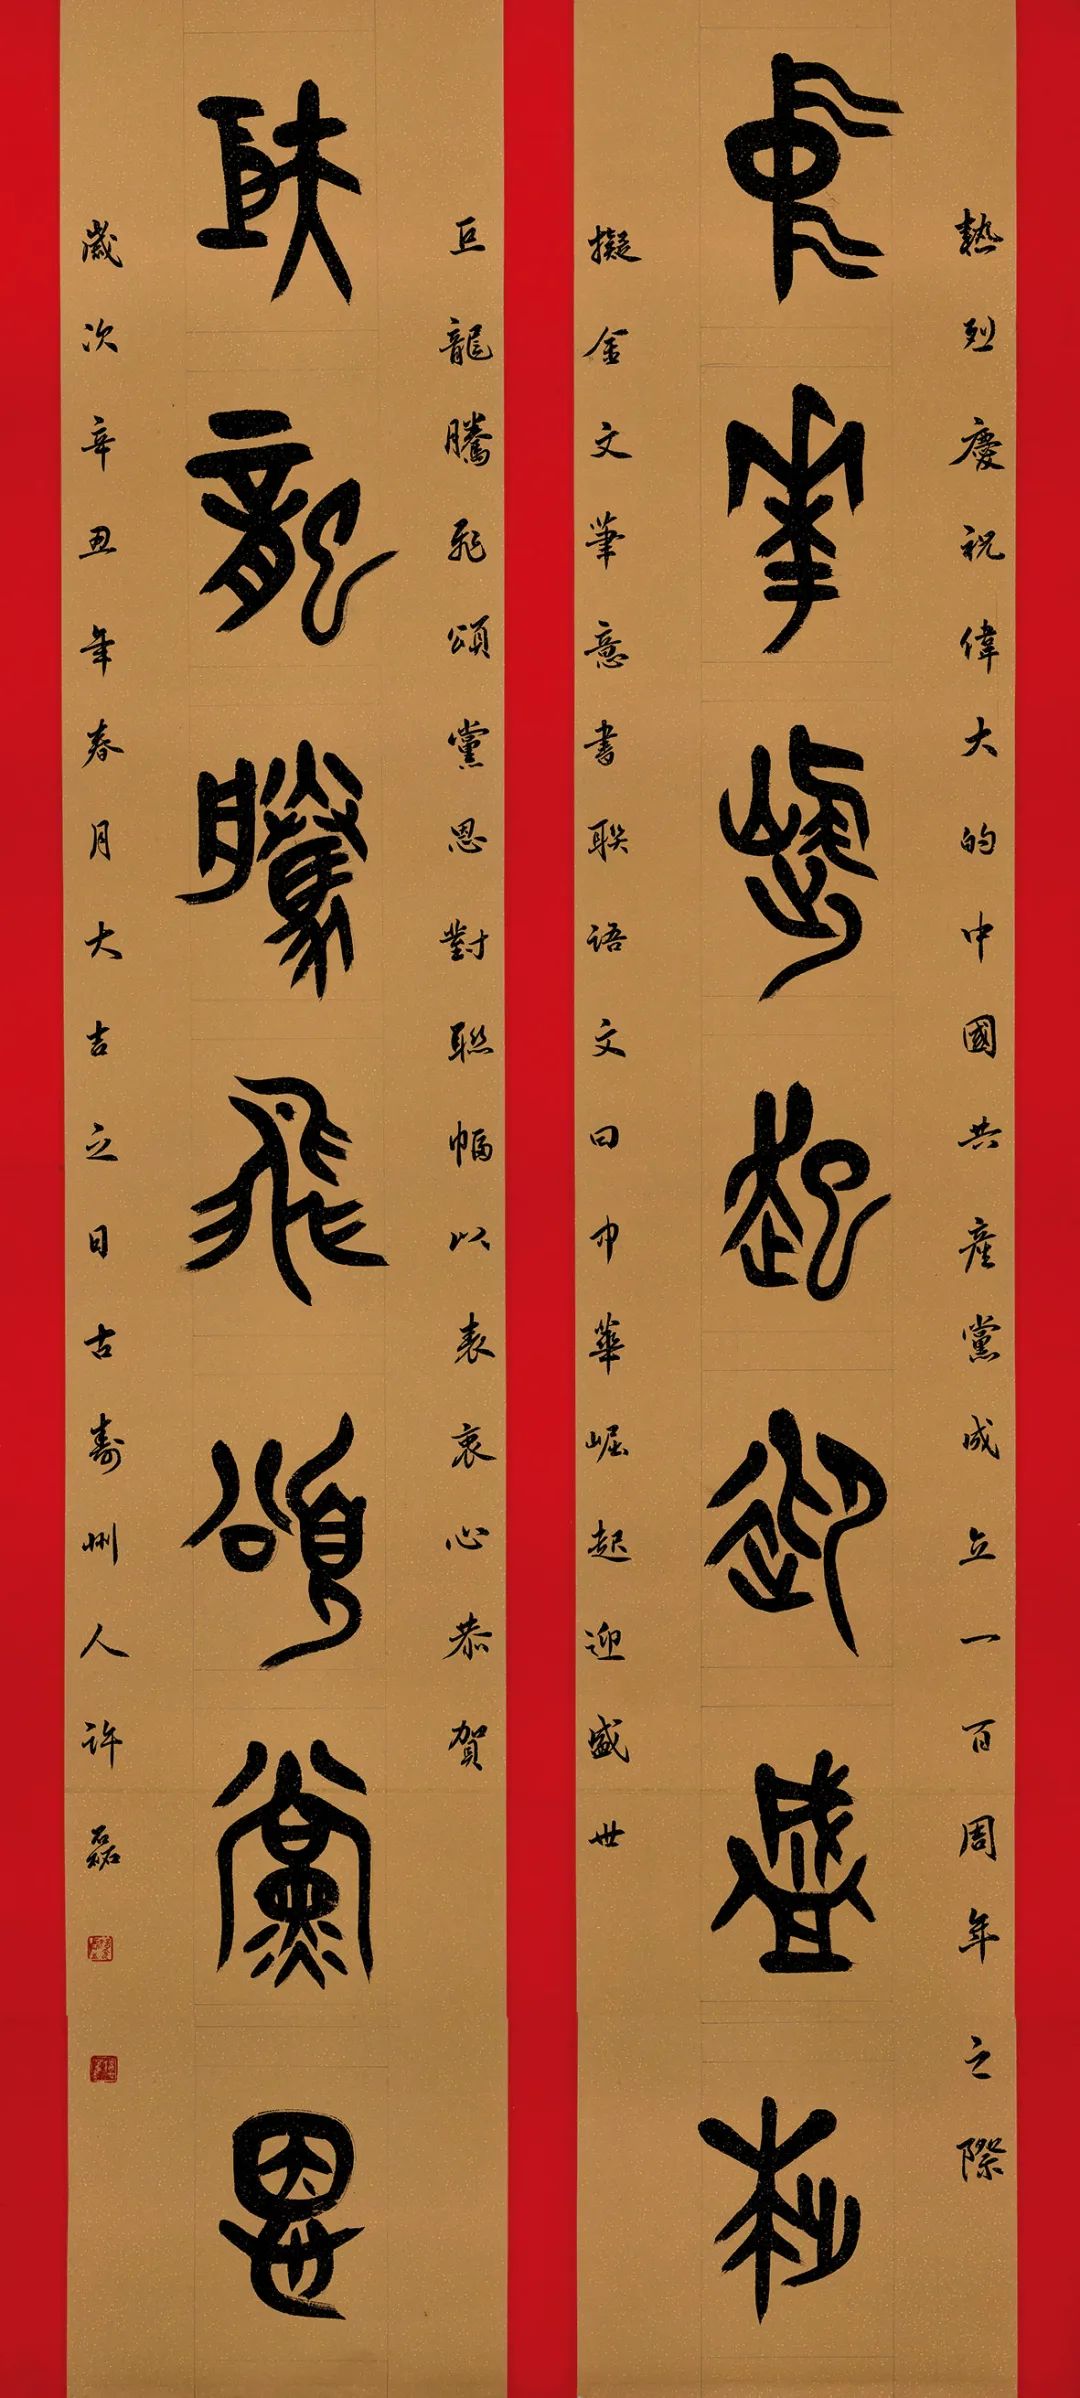 熱烈慶祝偉大的中國共産黨成立一百周年之際
中華崛起迎盛世
擬金文筆意書联語文曰中華崛起迎盛世
巨龍騰飛頌黨恩對聯幅以表衷心恭賀
巨龍騰飛頌黨恩
歲次辛丑年春月大吉之日古壽州人許磊